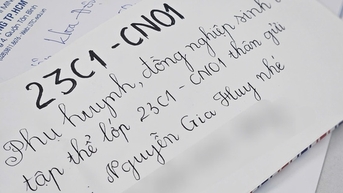 NG TP HCM
23C1 - CN01
Phụ huynh, đồng nghiệp sinh
tập thể lớp 23C1 - CN01 thân gửi
Nguyễn Gia Huy nhé